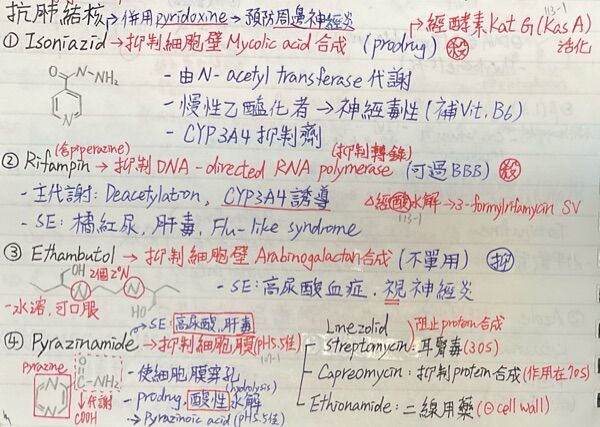 抗肺結核 → 併用pyridoxine → 預防周邊神經炎
113-1
→ 經酵素Kat G (Kas A) 活化
① Isoniazid → 抑制細胞壁 Mycolic acid 合成 (prodrug) 殺
O N-NH₂ N
- 由 N-acetyl transferase 代謝
- 慢性乙醯化者 → 神經毒性 (補Vit. B6)
- CYP3A4 抑制劑
(含piperazine) (抑制轉錄)
② Rifampin → 抑制 DNA-directed RNA polymerase (可過BBB) 殺
- 主代謝: Deacetylation, CYP3A4 誘導 △經酸水解 → 3-formylrifamycin SV
113-1
- SE: 橘紅尿, 肝毒, Flu-like syndrome
③ Ethambutol → 抑制細胞壁 Arabinogalactan 合成 (不單用) 抑
OH 2個2°N N N HO
- SE: 高尿酸血症, 視神經炎
- 水溶, 可口服
→ SE: 高尿酸, 肝毒
④ Pyrazinamide → 抑制細胞膜 (pH5.5佳)
107-1
Pyrazine N N O C-NH₂
↓代謝
COOH
- 使細胞膜穿孔
(hydrolysis)
- prodrug, 酸性水解
→ Pyrazinoic acid (pH5.5佳)
Linezolid 阻止protein合成
Streptomycin: 耳腎毒 (30S)
- Capreomycin: 抑制protein合成 (作用在70S)
Ethionamide: 二線用藥 (⊖ cell wall)